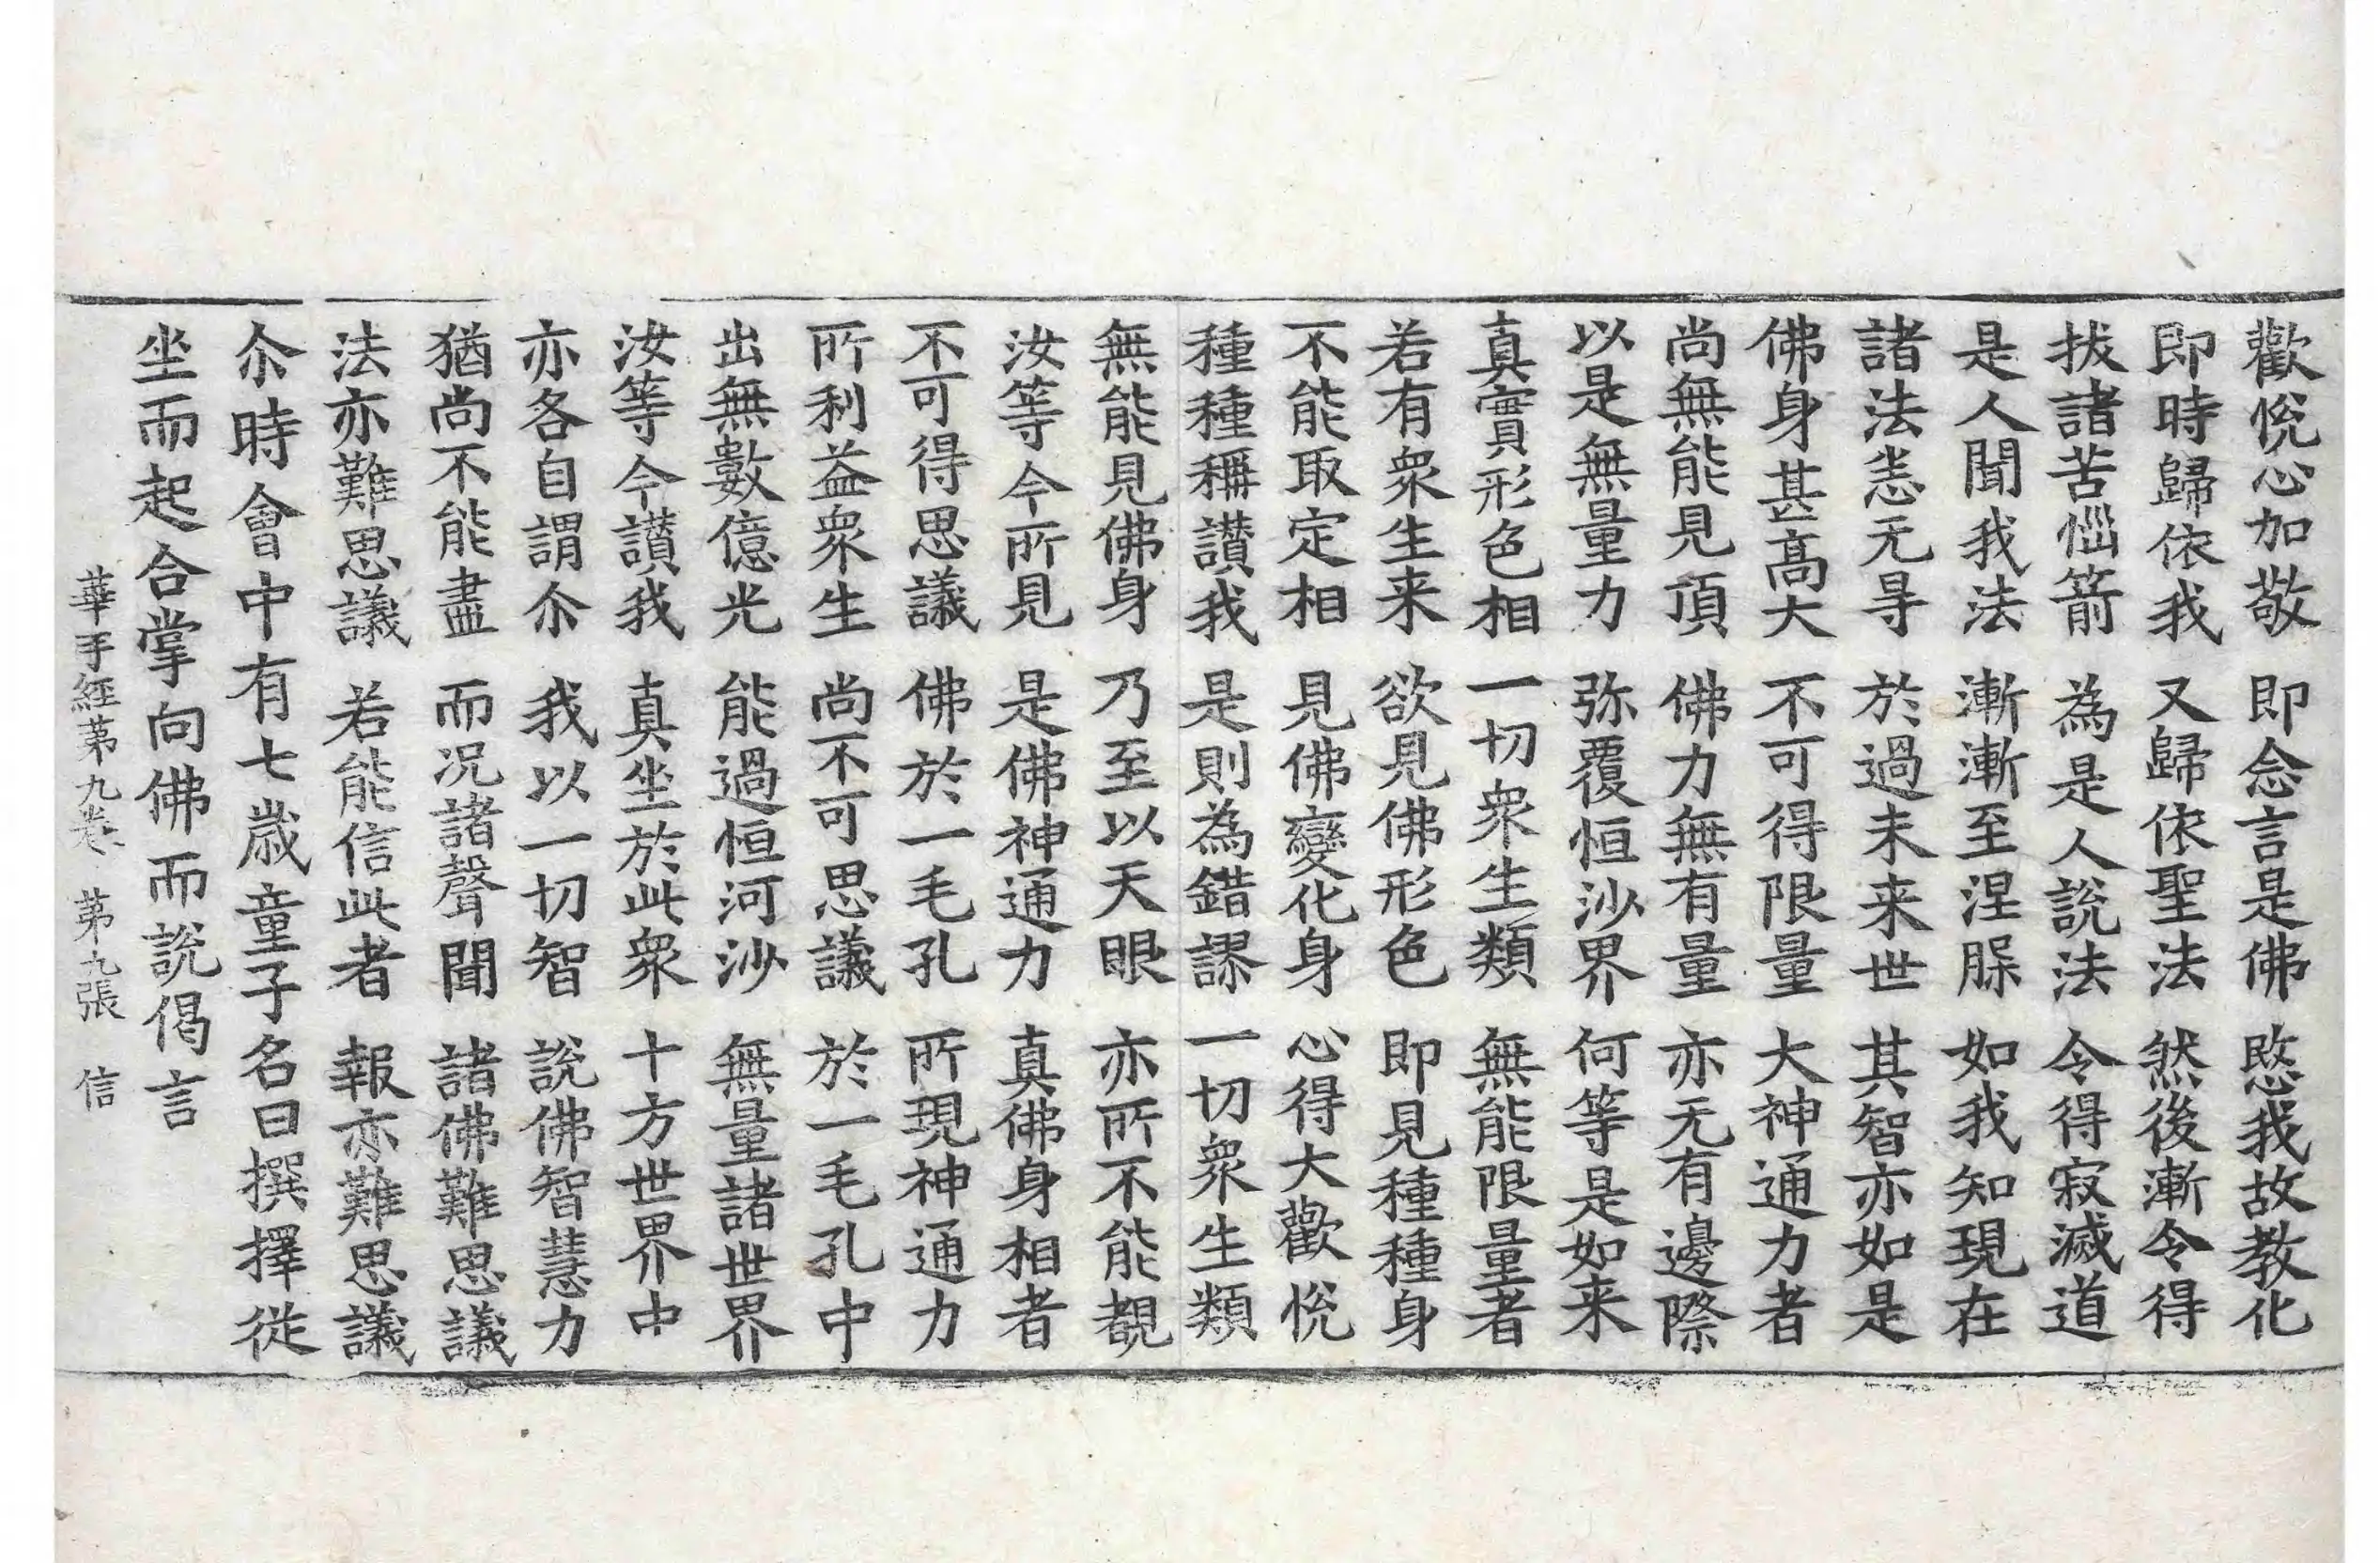 歡悅心加敬　即念言是佛　愍我故教化
即時歸依我　又歸依聖法　然後漸令得
拔諸苦惱箭　為是人說法　令得寂滅道
是人聞我法　漸漸至涅槃　如我知現在
諸法恙无㝵　於過未来世　其智亦如是
佛身甚高大　不可得限量　大神通力者
尚無能見頂　佛力無有量　亦无有邊際
以是無量力　弥覆恒沙界　何等是如来
真實形色相　一切衆生類　無能限量者
若有衆生来　欲見佛形色　即見種種身
不能取定相　見佛變化身　心得大歡悅
種種稱讃我　是則為錯謬　一切衆生類
無能見佛身　乃至以天眼　亦所不能覩
汝等今所見　是佛神通力　真佛身相者
不可得思議　佛於一毛孔　所現神通力
所利益衆生　尚不可思議　於一毛孔中
出無數億光　能過恒河沙　無量諸世界
汝等今讃我　真坐於此衆　十方世界中
亦各自謂尒　我以一切智　說佛智慧力
猶尚不能盡　而况諸聲聞　諸佛難思議
法亦難思議　若能信此者　報亦難思議
尒時會中有七歲童子名曰撰擇從
坐而起合掌向佛而說偈言
華手經苐九卷　苐九張　信